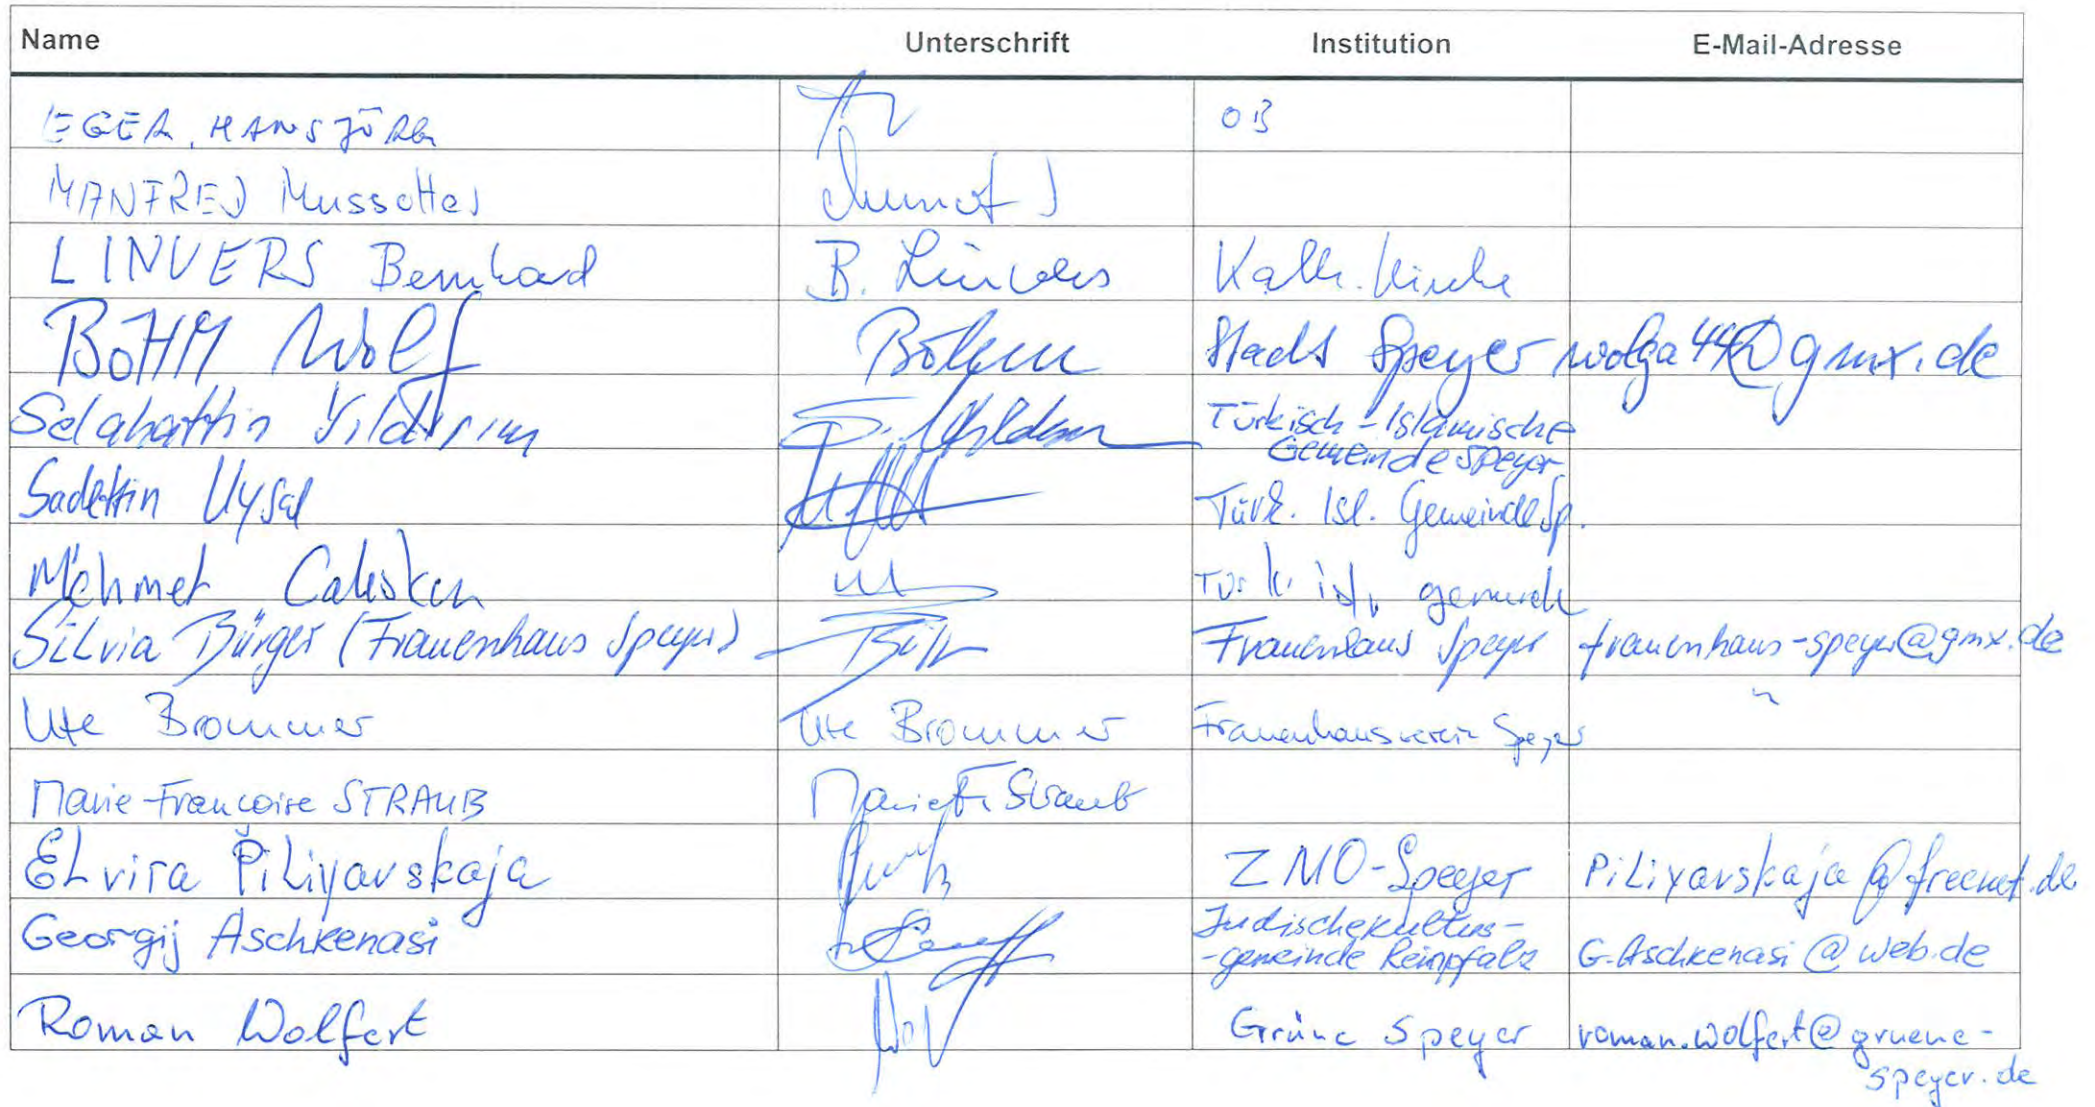 Name Unterschrift Institution E-Mail-Adresse
EGER, HANSJÖRG OB
MANFRED Mussotter
LINVERS Bernhard B. Linvers Kath. Kirche
BÖHM Wolf Böhm Stadt Speyer wolga44@gmx.de
Selahattin Yildirim S. Yildirim Türkisch-Islamische
Gemeinde Speyer.
Sadettin Uysal Türk. Isl. Gemeinde Sp.
Mehmet Caliskan Türk. isl. gemeinde
Silvia Bürger (Frauenhaus Speyer) Frauenhaus Speyer frauenhaus-speyer@gmx.de
Ute Brommer Ute Brommer Frauenhausverein Speyer "
Marie-Françoise STRAUB Marie F. Straub
Elvira Piliyavskaja ZMO-Speyer Piliyavskaja@freenet.de
Georgij Aschkenasi Judischekultus-
-gemeinde Reinpfalz G.Aschkenasi@web.de
Roman Wolfert Grüne Speyer roman.wolfert@gruene-
speyer.de